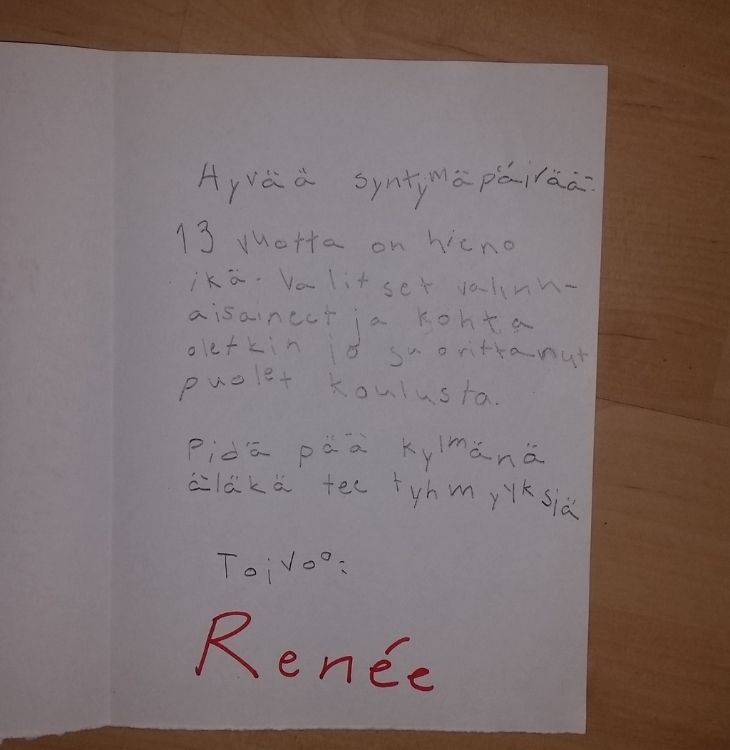 Hyvää syntymäpäivää.
13 vuotta on hieno
ikä. Valitset valinn-
aisaineet ja kohta
oletkin jo suorittanut
puolet koulusta.
Pidä pää kylmänä
äläkä tee tyhmyyksiä
Toivoo:
Renée